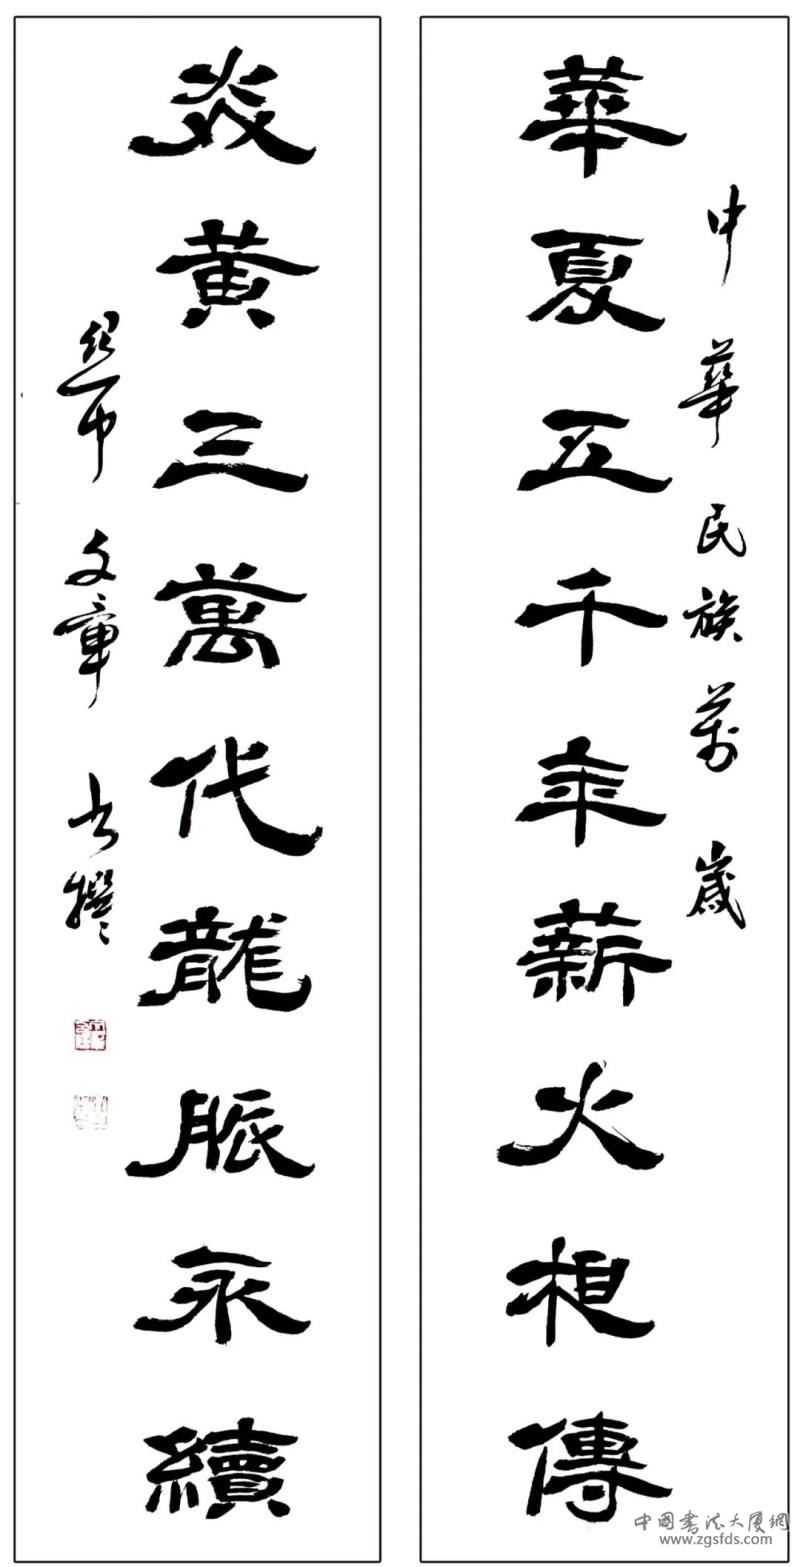 中華民族萬歲
華夏五千年薪火相傳
炎黄三萬代龍脈永續
文章
中國書法大廈網
www.zgsfds.com